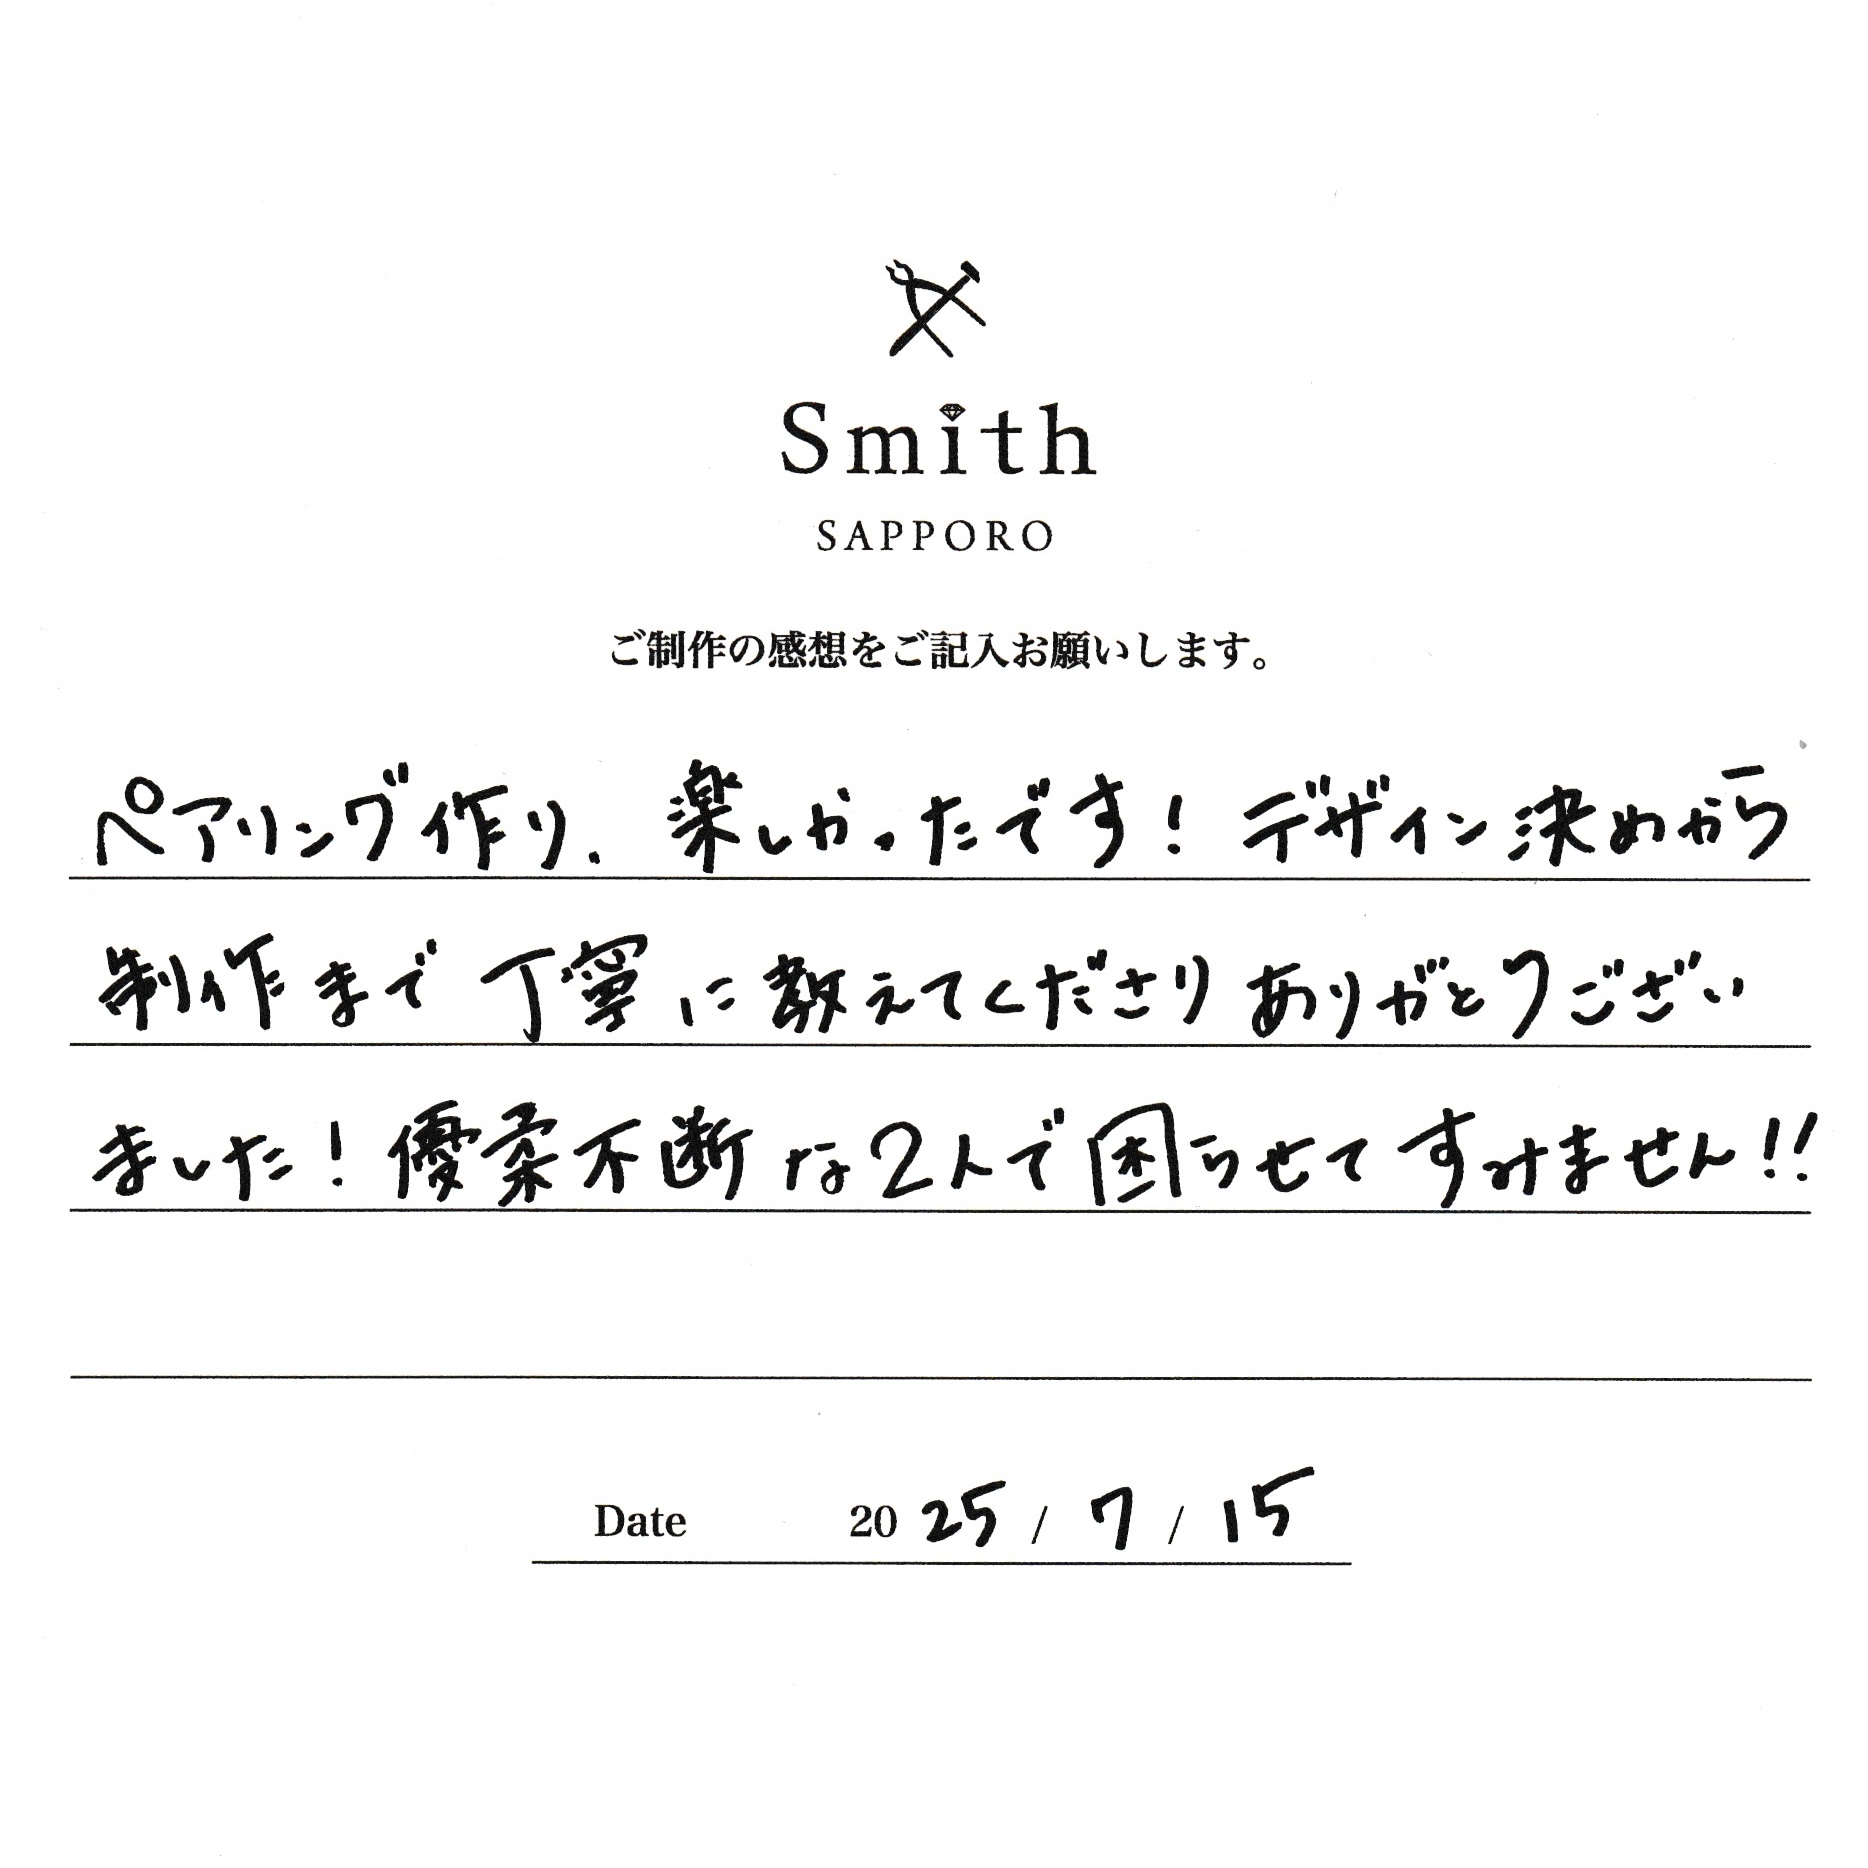 Smith
SAPPORO
ご制作の感想をご記入お願いします。
ペアリング作り、楽しかったです！デザイン決めから
制作まで丁寧に教えてくださりありがとうござい
ました！優柔不断な2人で困らせてすみません!!
Date 2025/7/15